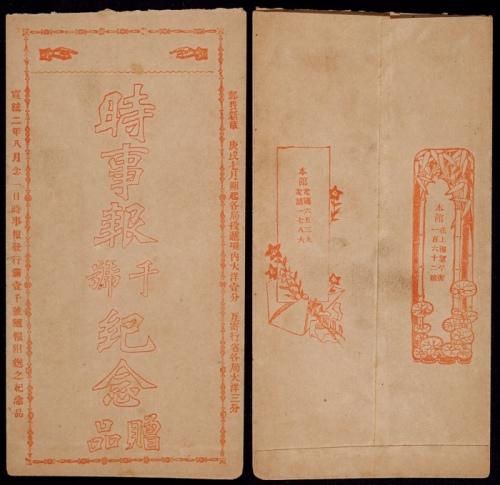 郵費新章 庚戌七月期起各局投遞境內大洋壹分 互寄行省各局大洋三分
時事報
千號
紀念
贈品
宣統二年八月念一日時事報發行滿壹千號隨報附送之紀念品
本館
在上海望平街
一百六十二號
本館
六五三九
電話一七八六